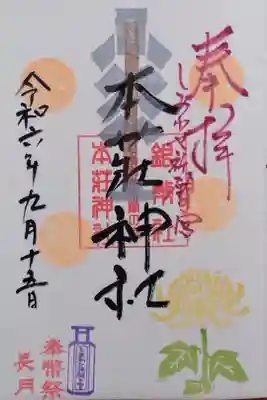 奉拝
本荘神社
本荘神社
銀幣社
令和六年九月十五日
奉幣祭
長月